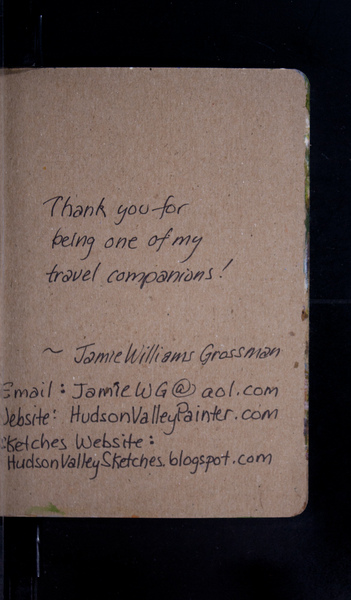 Thank you for
being one of my
travel companions!
~ Jamie Williams Grossman
Email: JamieWG@aol.com
Website: HudsonValleyPainter.com
Sketches Website:
HudsonValleySketches.blogspot.com